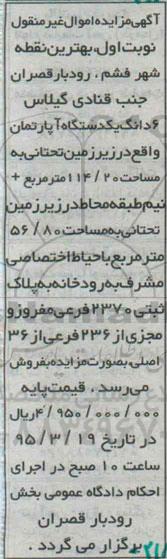 آگهی مزایده اموال غیرمنقول
نوبت اول، بهترین نقطه
شهر فشم ، رودبار قصران
جنب قنادی گیلاس
۶دانگ یکدستگاه آپارتمان
واقع در زیرزمین تحتانی به
مساحت ۱۱۴/۲۰ مترمربع +
نیم طبقه محاط در زیر زمین
تحتانی به مساحت ۵۶/۸۰
متر مربع با حیاط اختصاصی
مشرف به رودخانه به پلاک
ثبتی ۲۳۷۰ فرعی مفروز و
مجزی از ۲۳۶ فرعی از ۳۶
اصلی، بصورت مزایده بفروش
می رسد . قیمت پایه
۴/۹۵۰/۰۰۰/۰۰۰ریال
در تاریخ ۹۵/۳/۱۹
ساعت ۱۰ صبح در اجرای
احکام دادگاه عمومی بخش
رودبار قصران
برگزار می گردد .